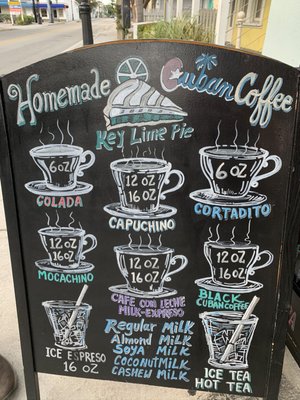 Homemade
Key Lime Pie
Cuban Coffee
6 OZ
COLADA
12 OZ
16 OZ
CAPUCHINO
6 OZ
CORTADITO
12 OZ
16 OZ
MOCACHINO
12 OZ
16 OZ
CAFE CON LECHE
MILK-EXPRESO
12 OZ
16 OZ
BLACK
CUBAN COFFEE
ICE ESPRESO
16 OZ
Regular Milk
Almond Milk
Soya Milk
COCONUT MILK
CASHEW MILK
ICE TEA
HOT TEA